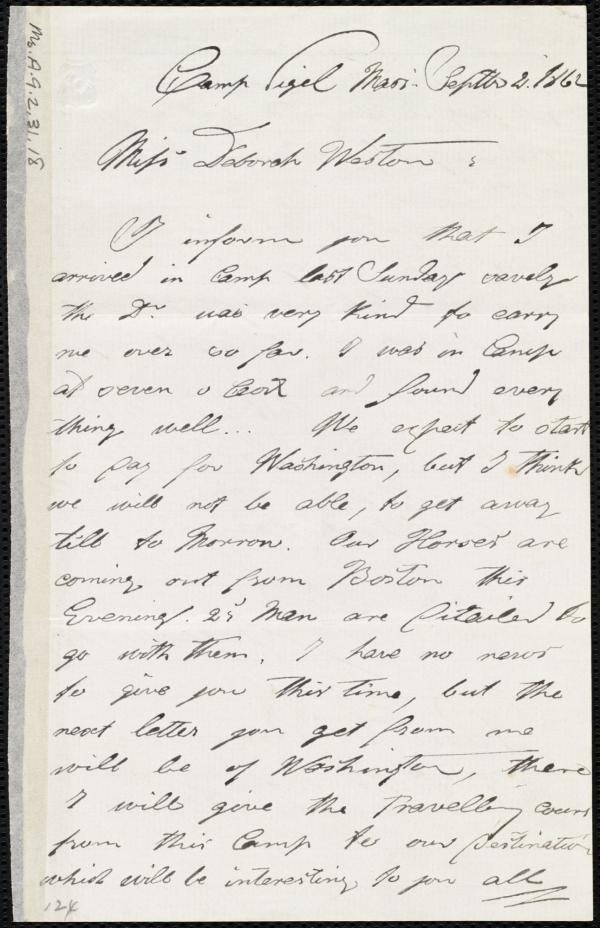 Ms.A.9.2.31.18
Camp Sigel Mass. Septbr 2. 1862
Miss Deborah Weston
I inform you that I
arrived in Camp last Sunday savely
the Dr. was very kind to carry
me over so far. I was in Camp
at seven o Clock and found every
thing well... We expect to start
to day for Washington, but I think
we will not be able, to get away
till to Morrow. Our Horses are
coming out from Boston this
Evening. 25 Man are Ditailed to
go with them. I have no news
to give you this time, but the
next letter you get from me
will be of Washington, there
I will give the Travelling cours
from this Camp to our Destination
which will be interesting to you all
124